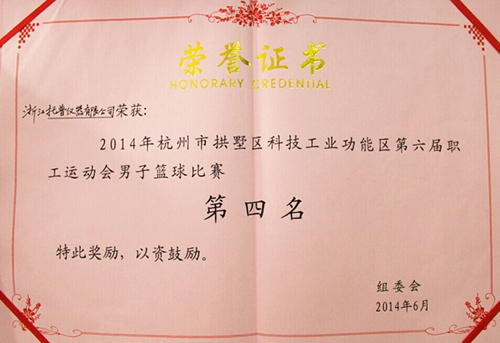 荣誉证书
HONORARY CREDENTIAL
浙江托普仪器有限公司荣获:
2014年杭州市拱墅区科技工业功能区第六届职
工运动会男子篮球比赛
第四名
特此奖励,以资鼓励。
组委会
2014年6月